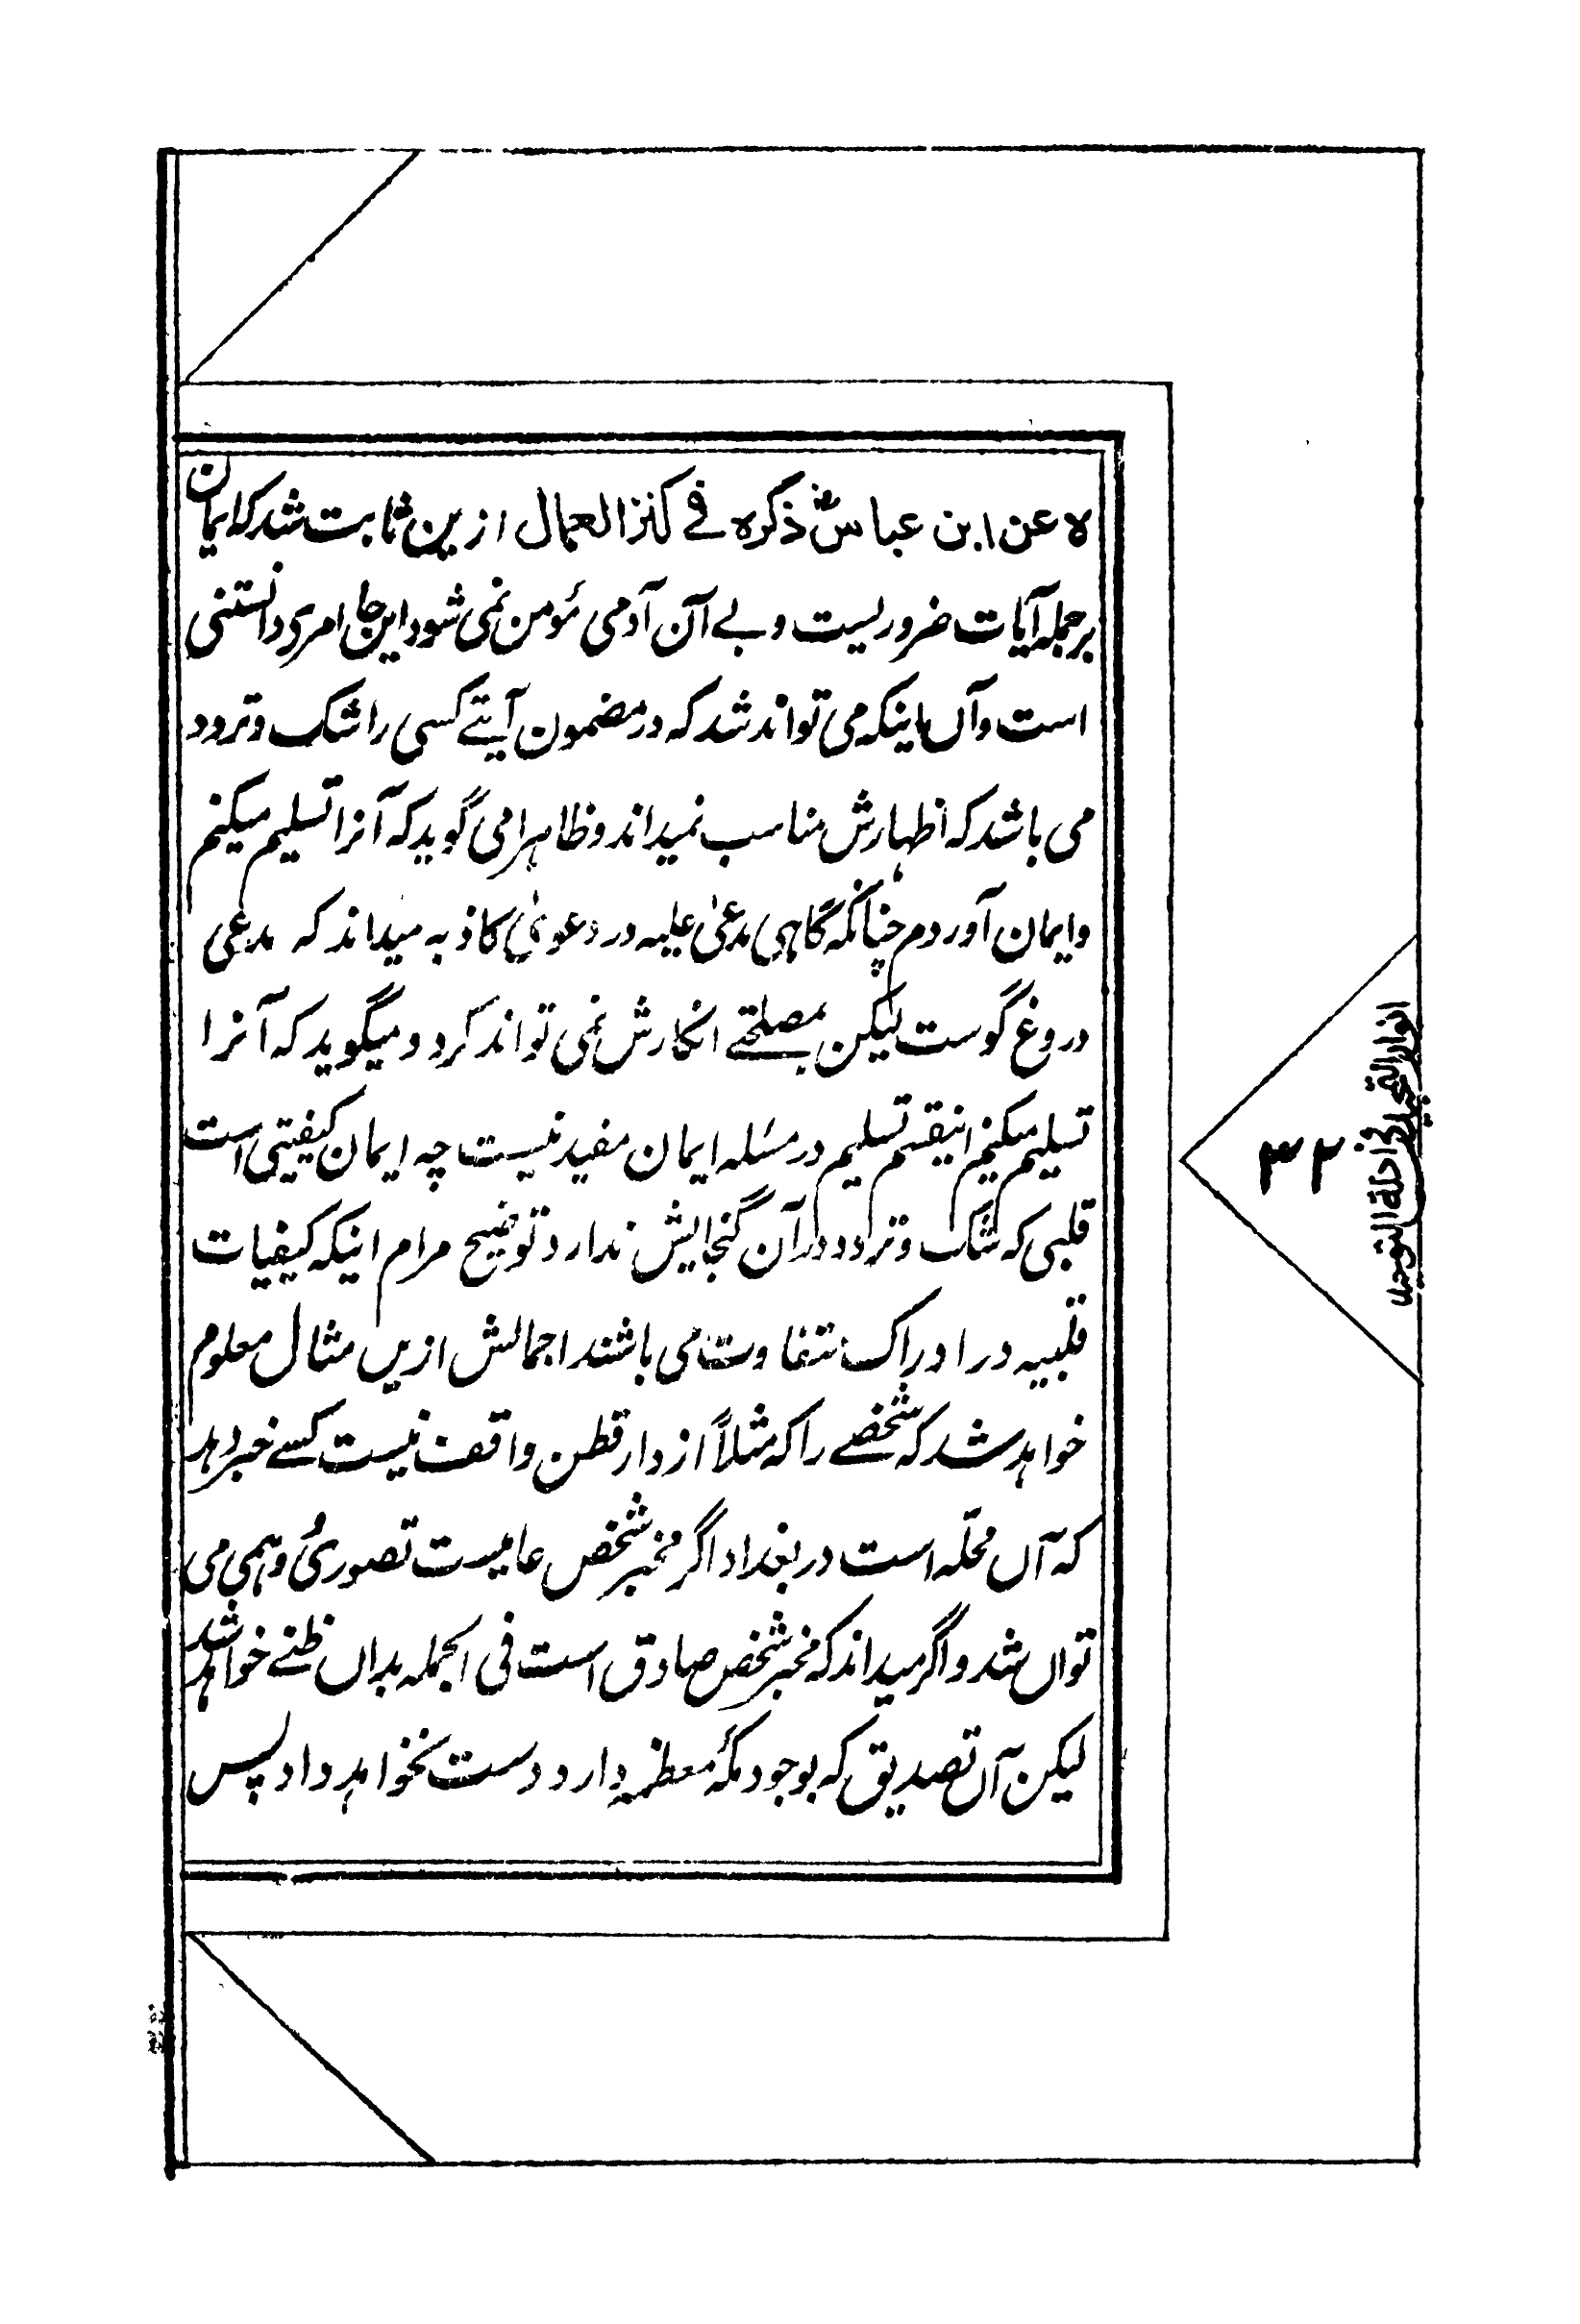 ہ عن ابن عباسؓ ذکرہ فے کنز العمال ازین ثابت شد کہ ایمان
بر جملہ آیات ضروریست و بے آن آدمی مؤمن نمی شود این جا امری دانستنی
است وآں اینکہ می تواند شد کہ در مضمون آیتے کسی را شک وتردد
می باشد کہ اظہارش مناسب نمیداند وظاہرا می گوید کہ آنرا تسلیم میکنم
وایمان آوردم چنانکہ گاہی مدعیٰ علیہ در دعویٰ کاذبہ میداند کہ مدعی
دروغ گوست لیکن بمصلحتے انکارش نمی تواند کرد ومیگوید کہ آنرا
تسلیم میکنم اینقسم تسلیم در مسئلہ ایمان مفید نیست چہ ایمان کیفیتی است
قلبی کہ شک وتردد درآن گنجایش ندارد توضیح مرام اینکہ کیفیات
قلبیہ در ادراک متفاوت می باشند اجمالش ازیں مثال معلوم
خواہد شد کہ شخصے را کہ مثلاً از دار قطن واقف نیست کسے خبر دہد
کہ آں محلّہ است در بغداد اگر مخبر شخص عامیست تصوری وہمی می
تواں شد واگر میداند کہ مخبر شخص صادق است فی الجملہ بداں ظنے خواہد شد
لیکن آں تصدیق کہ بوجود مکۂ معظمہ دارد دست نخواہد داد پس
۳۲
انوار التمجید فی ادلة التوحید